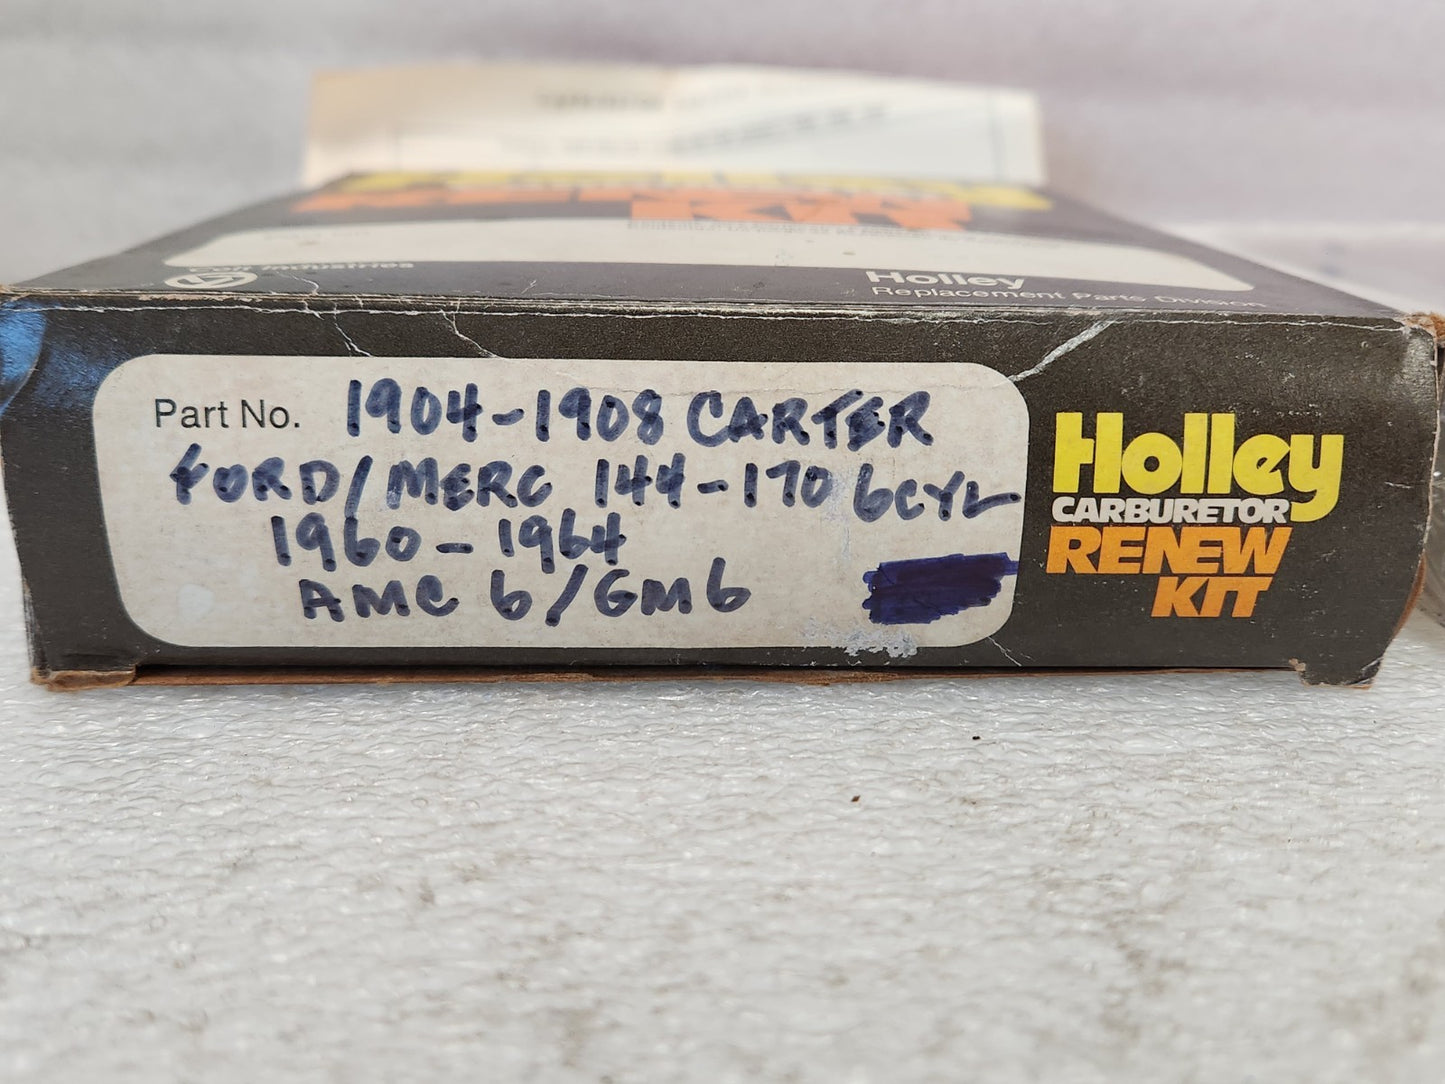 Holley
Replacement Parts Division
Part No. 1904-1908 CARTER
FORD/MERC 144-170 6CYL
1960-1964
AMC 6/GM6
Holley
CARBURETOR
RENEW
KIT